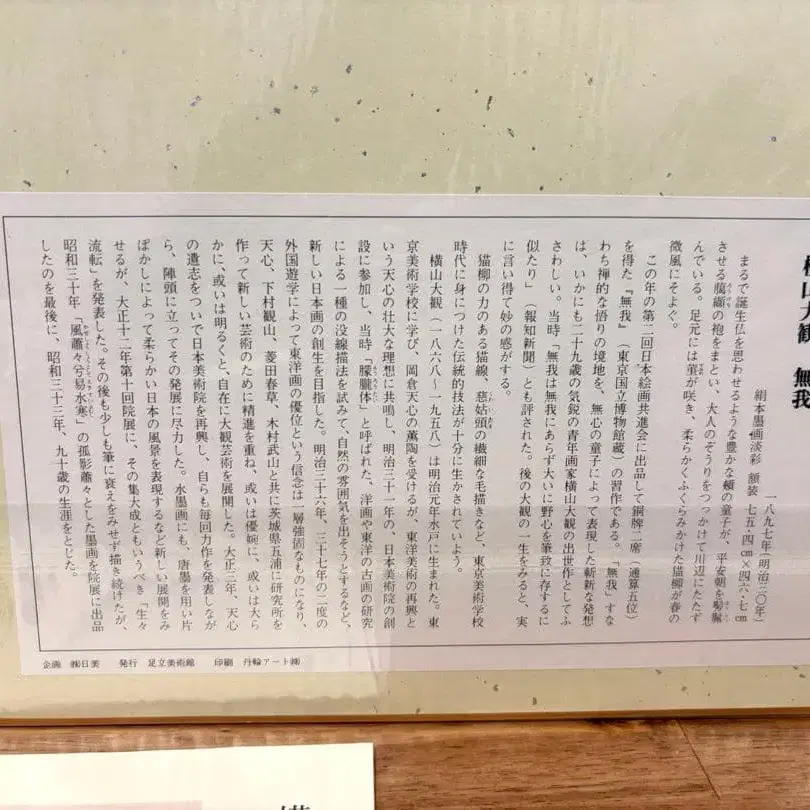 横山大観　無我
一八九七年(明治三〇年)
絹本墨画淡彩　額装　七五・四㎝×四六・七㎝
まるで誕生仏を思わせるような豊かな頬の童子が、平安朝を髣髴
させる﨟纈の袍をまとい、大人のぞうりをつっかけて川辺にたたず
んでいる。足元には菫が咲き、柔らかくふくらみかけた猫柳が春の
微風にそよぐ。
この年の第二回日本絵画共進会に出品して銅牌二席（通算五位）
を得た『無我』（東京国立博物館蔵）の習作である。「無我」すな
わち禅的な悟りの境地を、無心の童子によって表現した斬新な発想
は、いかにも二十九歳の気鋭の青年画家横山大観の出世作としてふ
さわしい。当時「無我は無我にあらず大いに野心を筆致に存するに
似たり」（報知新聞）とも評された。後の大観の一生をみると、実
に言い得て妙の感がする。
猫柳の力のある描線、慈姑頭の繊細な毛描きなど、東京美術学校
時代に身につけた伝統的技法が十分に生かされていよう。
横山大観（一八六八〜一九五八）は明治元年水戸に生まれた。東
京美術学校に学び、岡倉天心の薫陶を受けるが、東洋美術の再興と
いう天心の壮大な理想に共鳴し、明治三十一年の、日本美術院の創
設に参加し、当時「朦朧体」と呼ばれた、洋画や東洋の古画の研究
による一種の没線描法を試みて、自然の雰囲気を出そうとするなど、
新しい日本画の創生を目指した。明治三十六年、三十七年の二度の
外国遊学によって東洋画の優位という信念は一層強固なものになり、
天心、下村観山、菱田春草、木村武山と共に茨城県五浦に研究所を
作って新しい芸術のために精進を重ね、或いは優婉に、或いは大ら
かに、或いは明るくと、自在に大観芸術を展開した。大正二年、天心
の遺志をついで日本美術院を再興し、自らも毎回力作を発表しなが
ら、陣頭に立ってその発展に尽力した。水墨画にも、唐墨を用い片
ぼかしによって柔らかい日本の風景を表現するなど新しい展開をみ
せるが、大正十二年第十回院展に、その集大成ともいうべき「生々
流転」を発表した。その後も少しも筆に衰えをみせず描き続けたが、
昭和三十年「風蕭々兮易水寒」の孤影蕭々とした墨画を院展に出品
したのを最後に、昭和三十三年、九十歳の生涯をとじた。
企画　㈱日美　　発行　足立美術館　　印刷　丹輪アート㈱